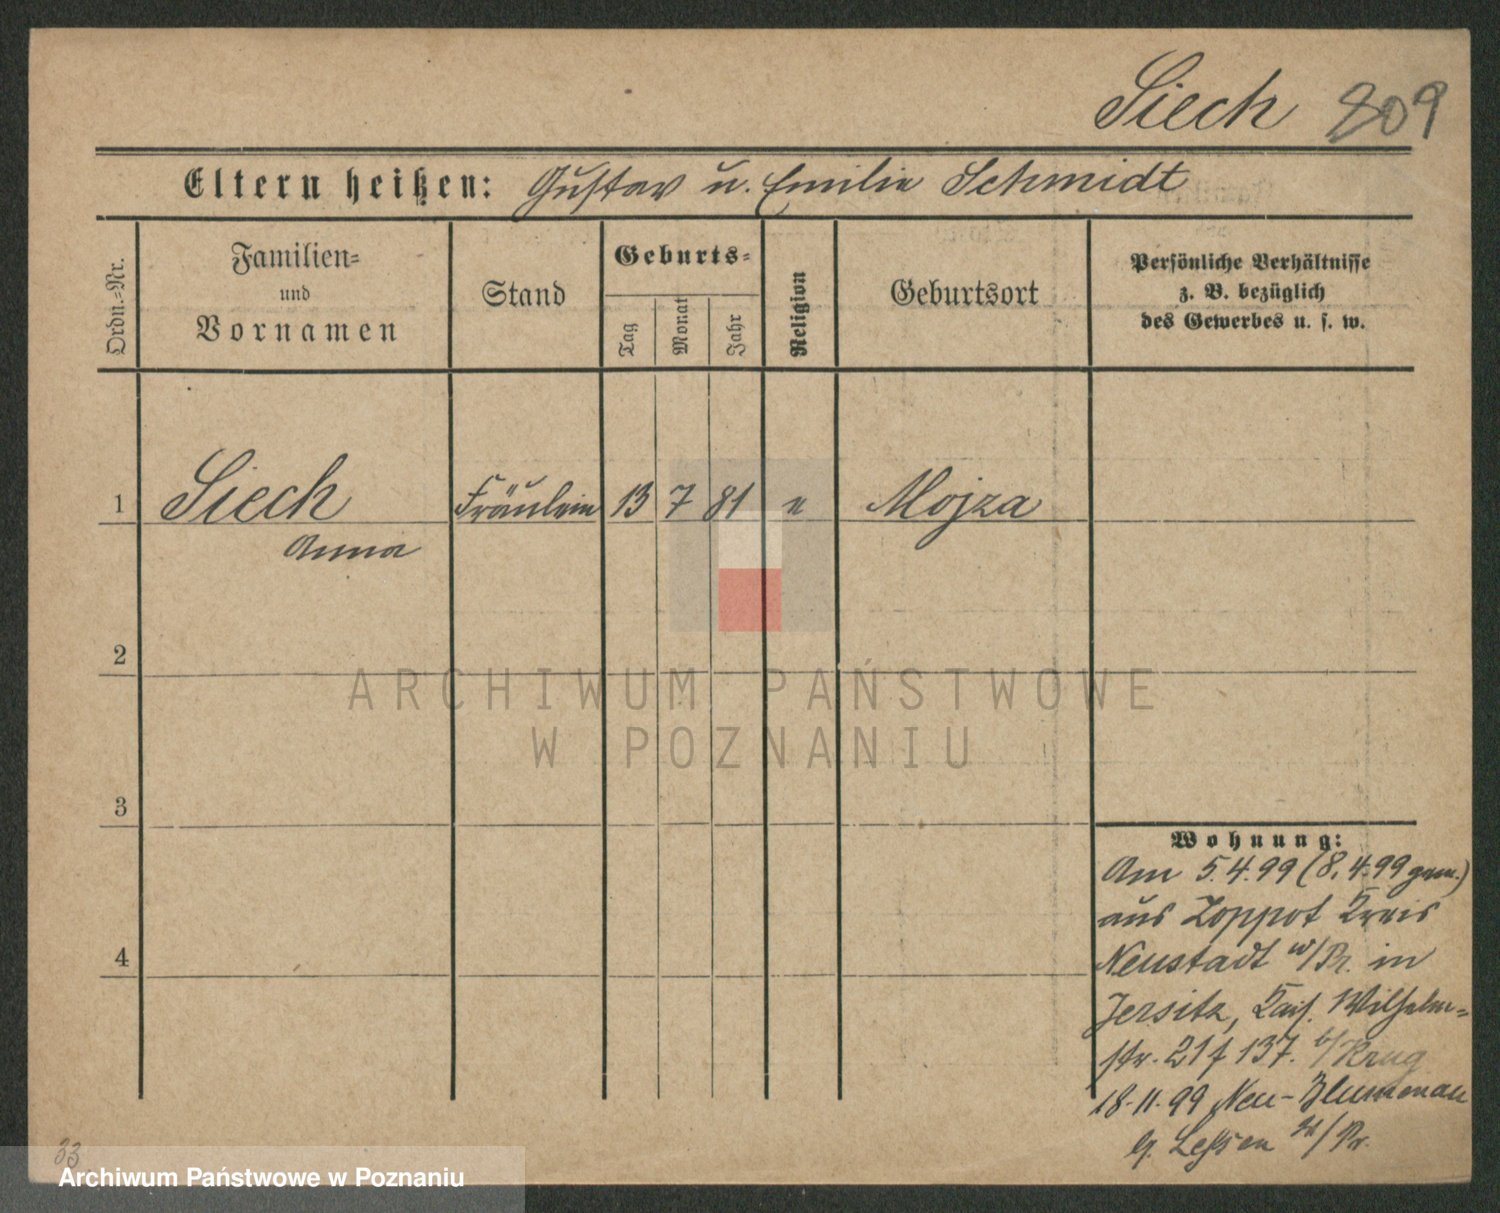 Siech 809
Eltern heißen: Gustav u. Emilie Schmidt
Ordn.=Nr.
Familien=
und
Vornamen
Stand
Geburts=
Tag
Monat
Jahr
Religion
Geburtsort
Persönliche Verhältnisse
z. B. bezüglich
des Gewerbes u. s. w.
1 Siech Fräulein 13 7 81 e Mojza
Anna
2
ARCHIWUM PAŃSTWOWE
W POZNANIU
3
4
Wohnung:
Am 5.4.99 (8.4.99 gem.)
aus Zoppot Kreis
Neustadt W/Pr. in
Jersitz, Kais. Wilhelm=
str. 21 f 137. b/Krug
18.11.99 Neu-Blumenau
b. Lessen W/Pr.
33
Archiwum Państwowe w Poznaniu